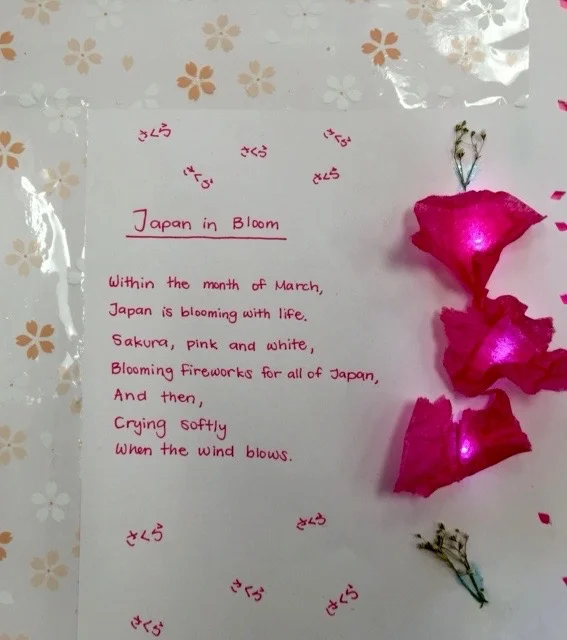 さくら
さくら
さくら
さくら
さくら
Japan in Bloom
Within the month of March,
Japan is blooming with life.
Sakura, pink and white,
Blooming Fireworks for all of Japan,
And then,
Crying softly
When the wind blows.
さくら
さくら
さくら
さくら
さくら